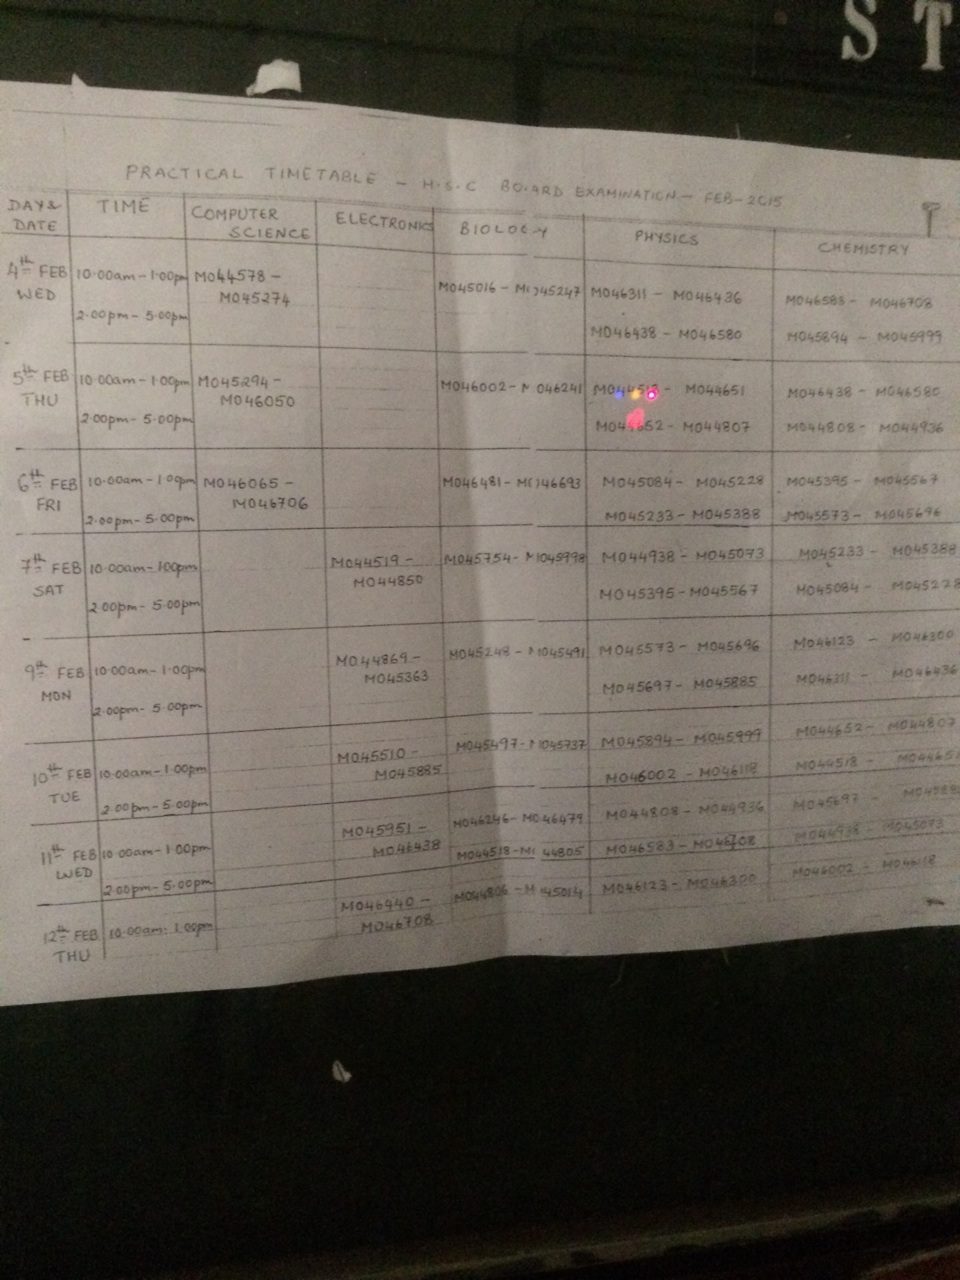 ST
PRACTICAL TIMETABLE - H.S.C BOARD EXAMINATION - FEB-2015
DAY & DATE TIME COMPUTER SCIENCE ELECTRONICS BIOLOGY PHYSICS CHEMISTRY
4th FEB WED 10.00am - 1.00pm M044578 - M045274 M045016 - M045247 M046311 - M046436 M046583 - M046708
2.00pm - 5.00pm M046438 - M046580 M045894 - M045999
5th FEB THU 10.00am - 1.00pm M045294 - M046050 M046002 - M046241 - M044651 M046438 - M046580
2.00pm - 5.00pm M044652 - M044807 M044808 - M044936
6th FEB FRI 10.00am - 1.00pm M046065 - M046706 M046481 - M046693 M045084 - M045228 M045395 - M045567
2.00pm - 5.00pm M045233 - M045388 M045573 - M045696
7th FEB SAT 10.00am - 1.00pm M044519 - M044850 M045754 - M045998 M044938 - M045073 M045233 - M045388
2.00pm - 5.00pm M045395 - M045567 M045084 - M045228
9th FEB MON 10.00am - 1.00pm M044869 - M045363 M045248 - M045491 M045573 - M045696 M046123 - M046300
2.00pm - 5.00pm M045697 - M045885 M046311 - M046436
10th FEB TUE 10.00am - 1.00pm M045510 - M045885 M045497 - M045737 M045894 - M045999 M044652 - M044807
2.00pm - 5.00pm M046002 - M046118 M044518 -
11th FEB WED 10.00am - 1.00pm M045951 - M046438 M046246 - M046479 M044808 - M044936 M045697 -
2.00pm - 5.00pm M044518 - M044805 M046583 - M046708 M044938 - M045073
12th FEB THU 10.00am : 1.00pm M046440 - M046708 M044806 - M045014 M046123 - M046300 M046002 - M046118